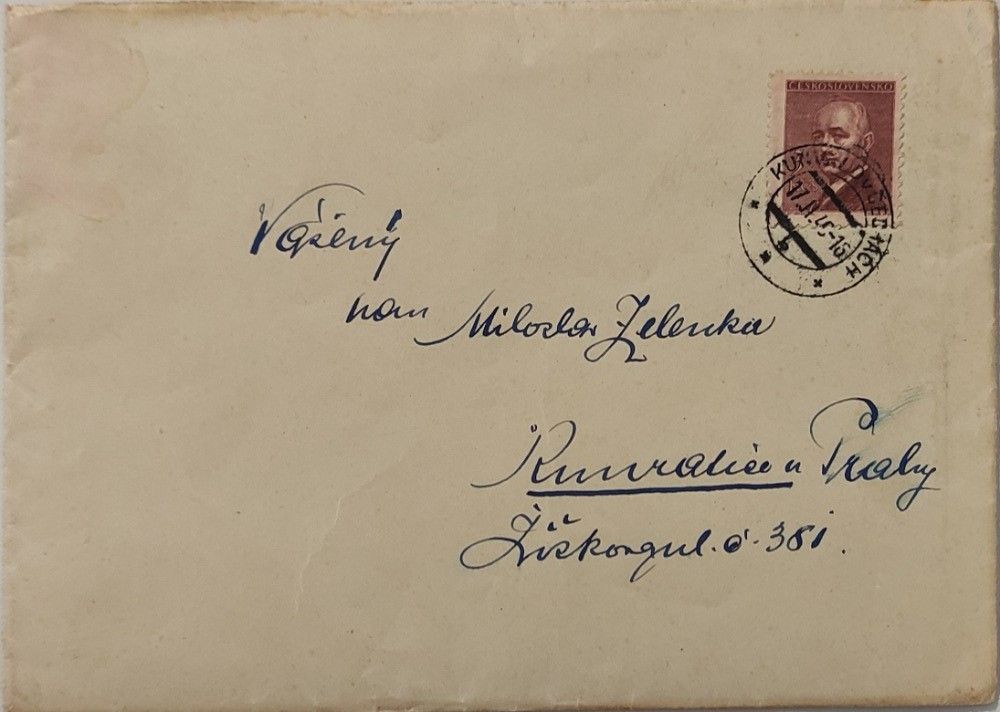 ČESKOSLOVENSKO
V ČECHÁCH
Vážený
pan Miloslav Zelenka
Kunratice u Prahy
Žižkova ul. č. 381.